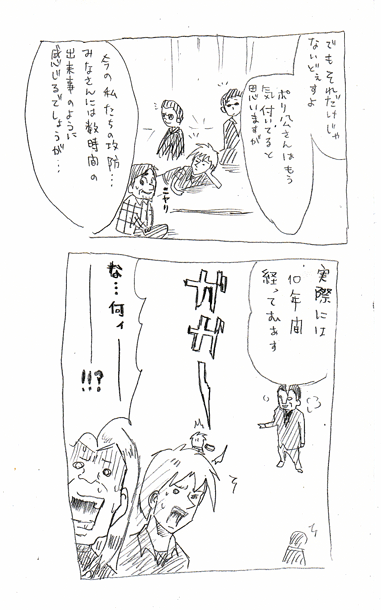 でもそれだけじゃ
ないどぇすよ
ポリ公さんはもう
気付いてると
思いますが
今の私たちの攻防…
みなさんには数時間の
出来事のように
感じるでしょうが…
ニヤリ
実際には
10年間
経ってむぁす
ガガーーン
な…何ィ――――!!?